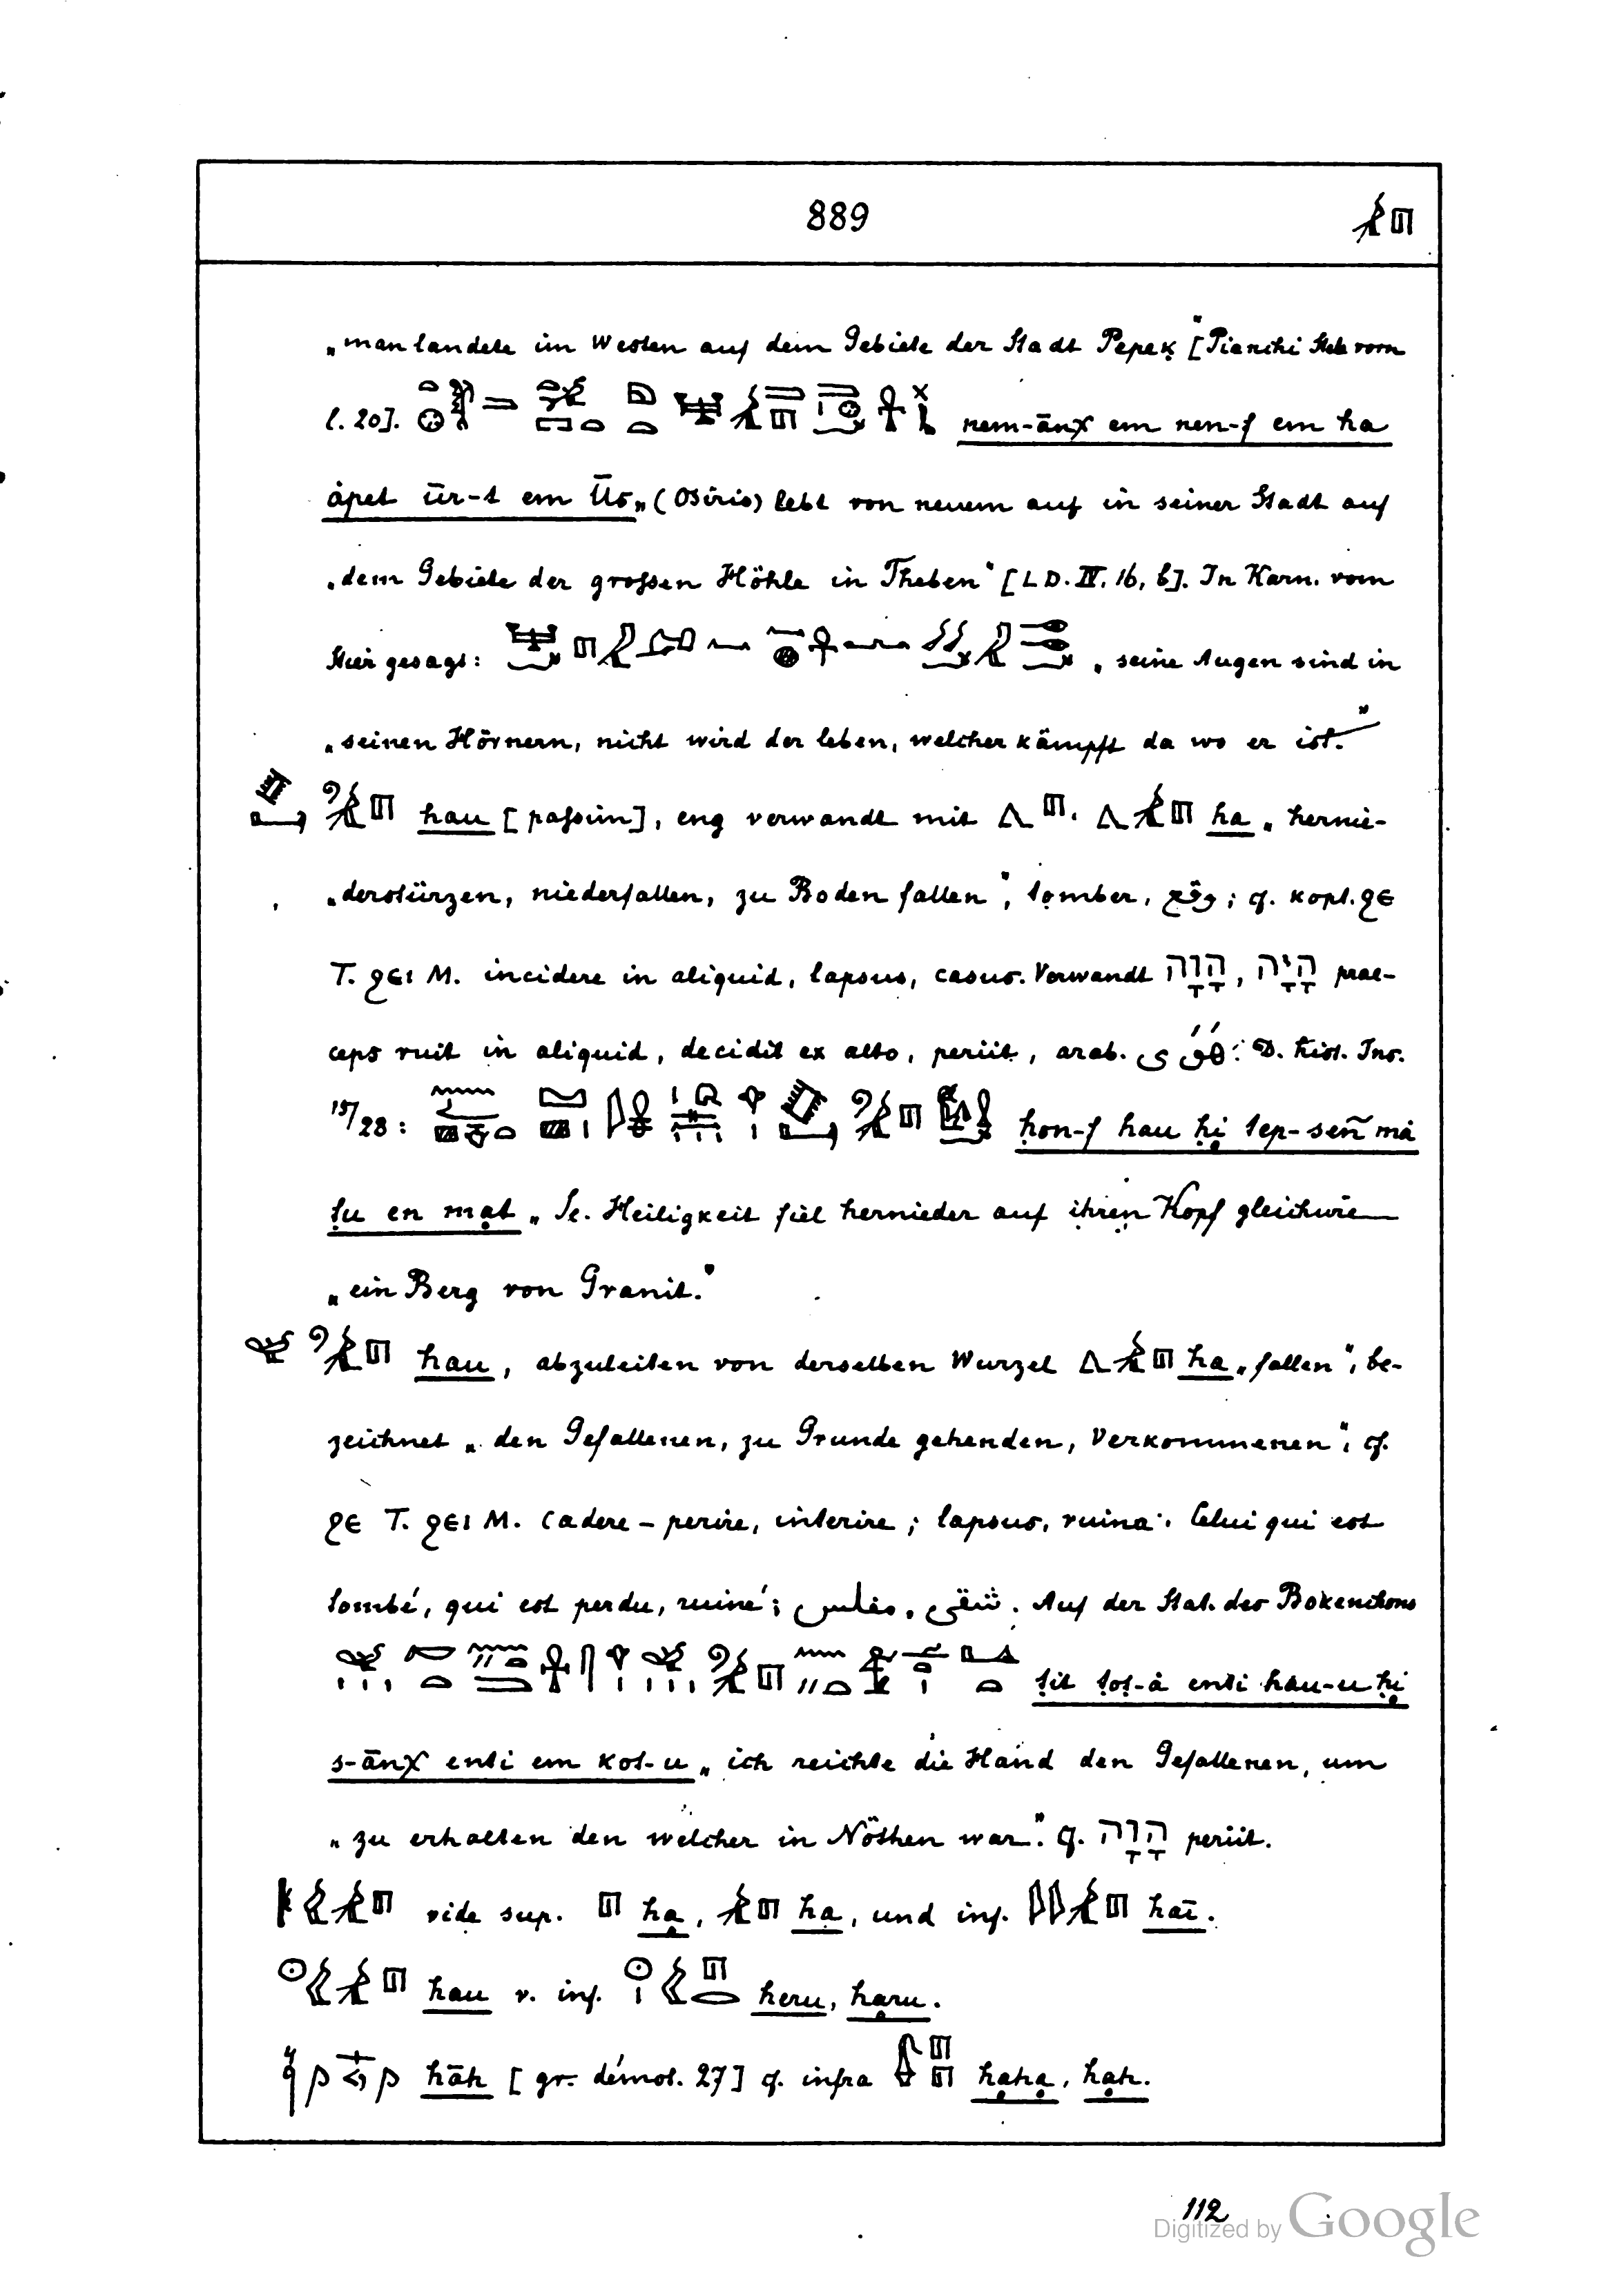 889
„man landete im Westen auf dem Gebiete der Stadt Pepeḳ" [Pianchi Stele vorn
l. 20]. nem-ānχ em nen-f em ha
åpet ūr-t em Ūs „(Osiris) lebt von neuem auf in seiner Stadt auf
„dem Gebiete der großen Höhle in Theben" [LD. IV, 16, b]. In Karn. vom
Stier gesagt: „seine Augen sind in
„seinen Hörnern, nicht wird der leben, welcher kämpft da wo er ist."
hau [passim], eng verwandt mit ha „hernie-
„derstürzen, niederfallen, zu Boden fallen", tomber, وقع; cf. kopt. ϩⲉ
T. ϩⲉⲓ M. incidere in aliquid, lapsus, casus. Verwandt הָוָה, הָיָה prae-
ceps ruit in aliquid, decidit ex alto, periit, arab. هَوَى. D. hist. Ins.
15/28: ḥon-f hau ḥi tep-sen má
ṭu en mạt „Se. Heiligkeit fiel hernieder auf ihren Kopf gleichwie
„ein Berg von Granit."
hau, abzuleiten von derselben Wurzel ha „fallen", be-
zeichnet „den Gefallenen, zu Grunde gehenden, Verkommenen", cf.
ϩⲉ T. ϩⲉⲓ M. cadere – perire, interire; lapsus, ruina. Celui qui est
tombé, qui est perdu, ruiné; شقى, مفلس. Auf der Stat. des Bokenchons
ṭit ṭoṭ-á enti hau-u ḥi
s-ānχ enti em kot-u „ich reichte die Hand den Gefallenen, um
„zu erhalten den welcher in Nöthen war". cf. הָוָה periit.
vide sup. hạ, hạ, und inf. haī.
hau v. inf. heru, hạru.
hāh [gr. démot. 27] cf. infra hạhạ, hạh.
112
Digitized by Google